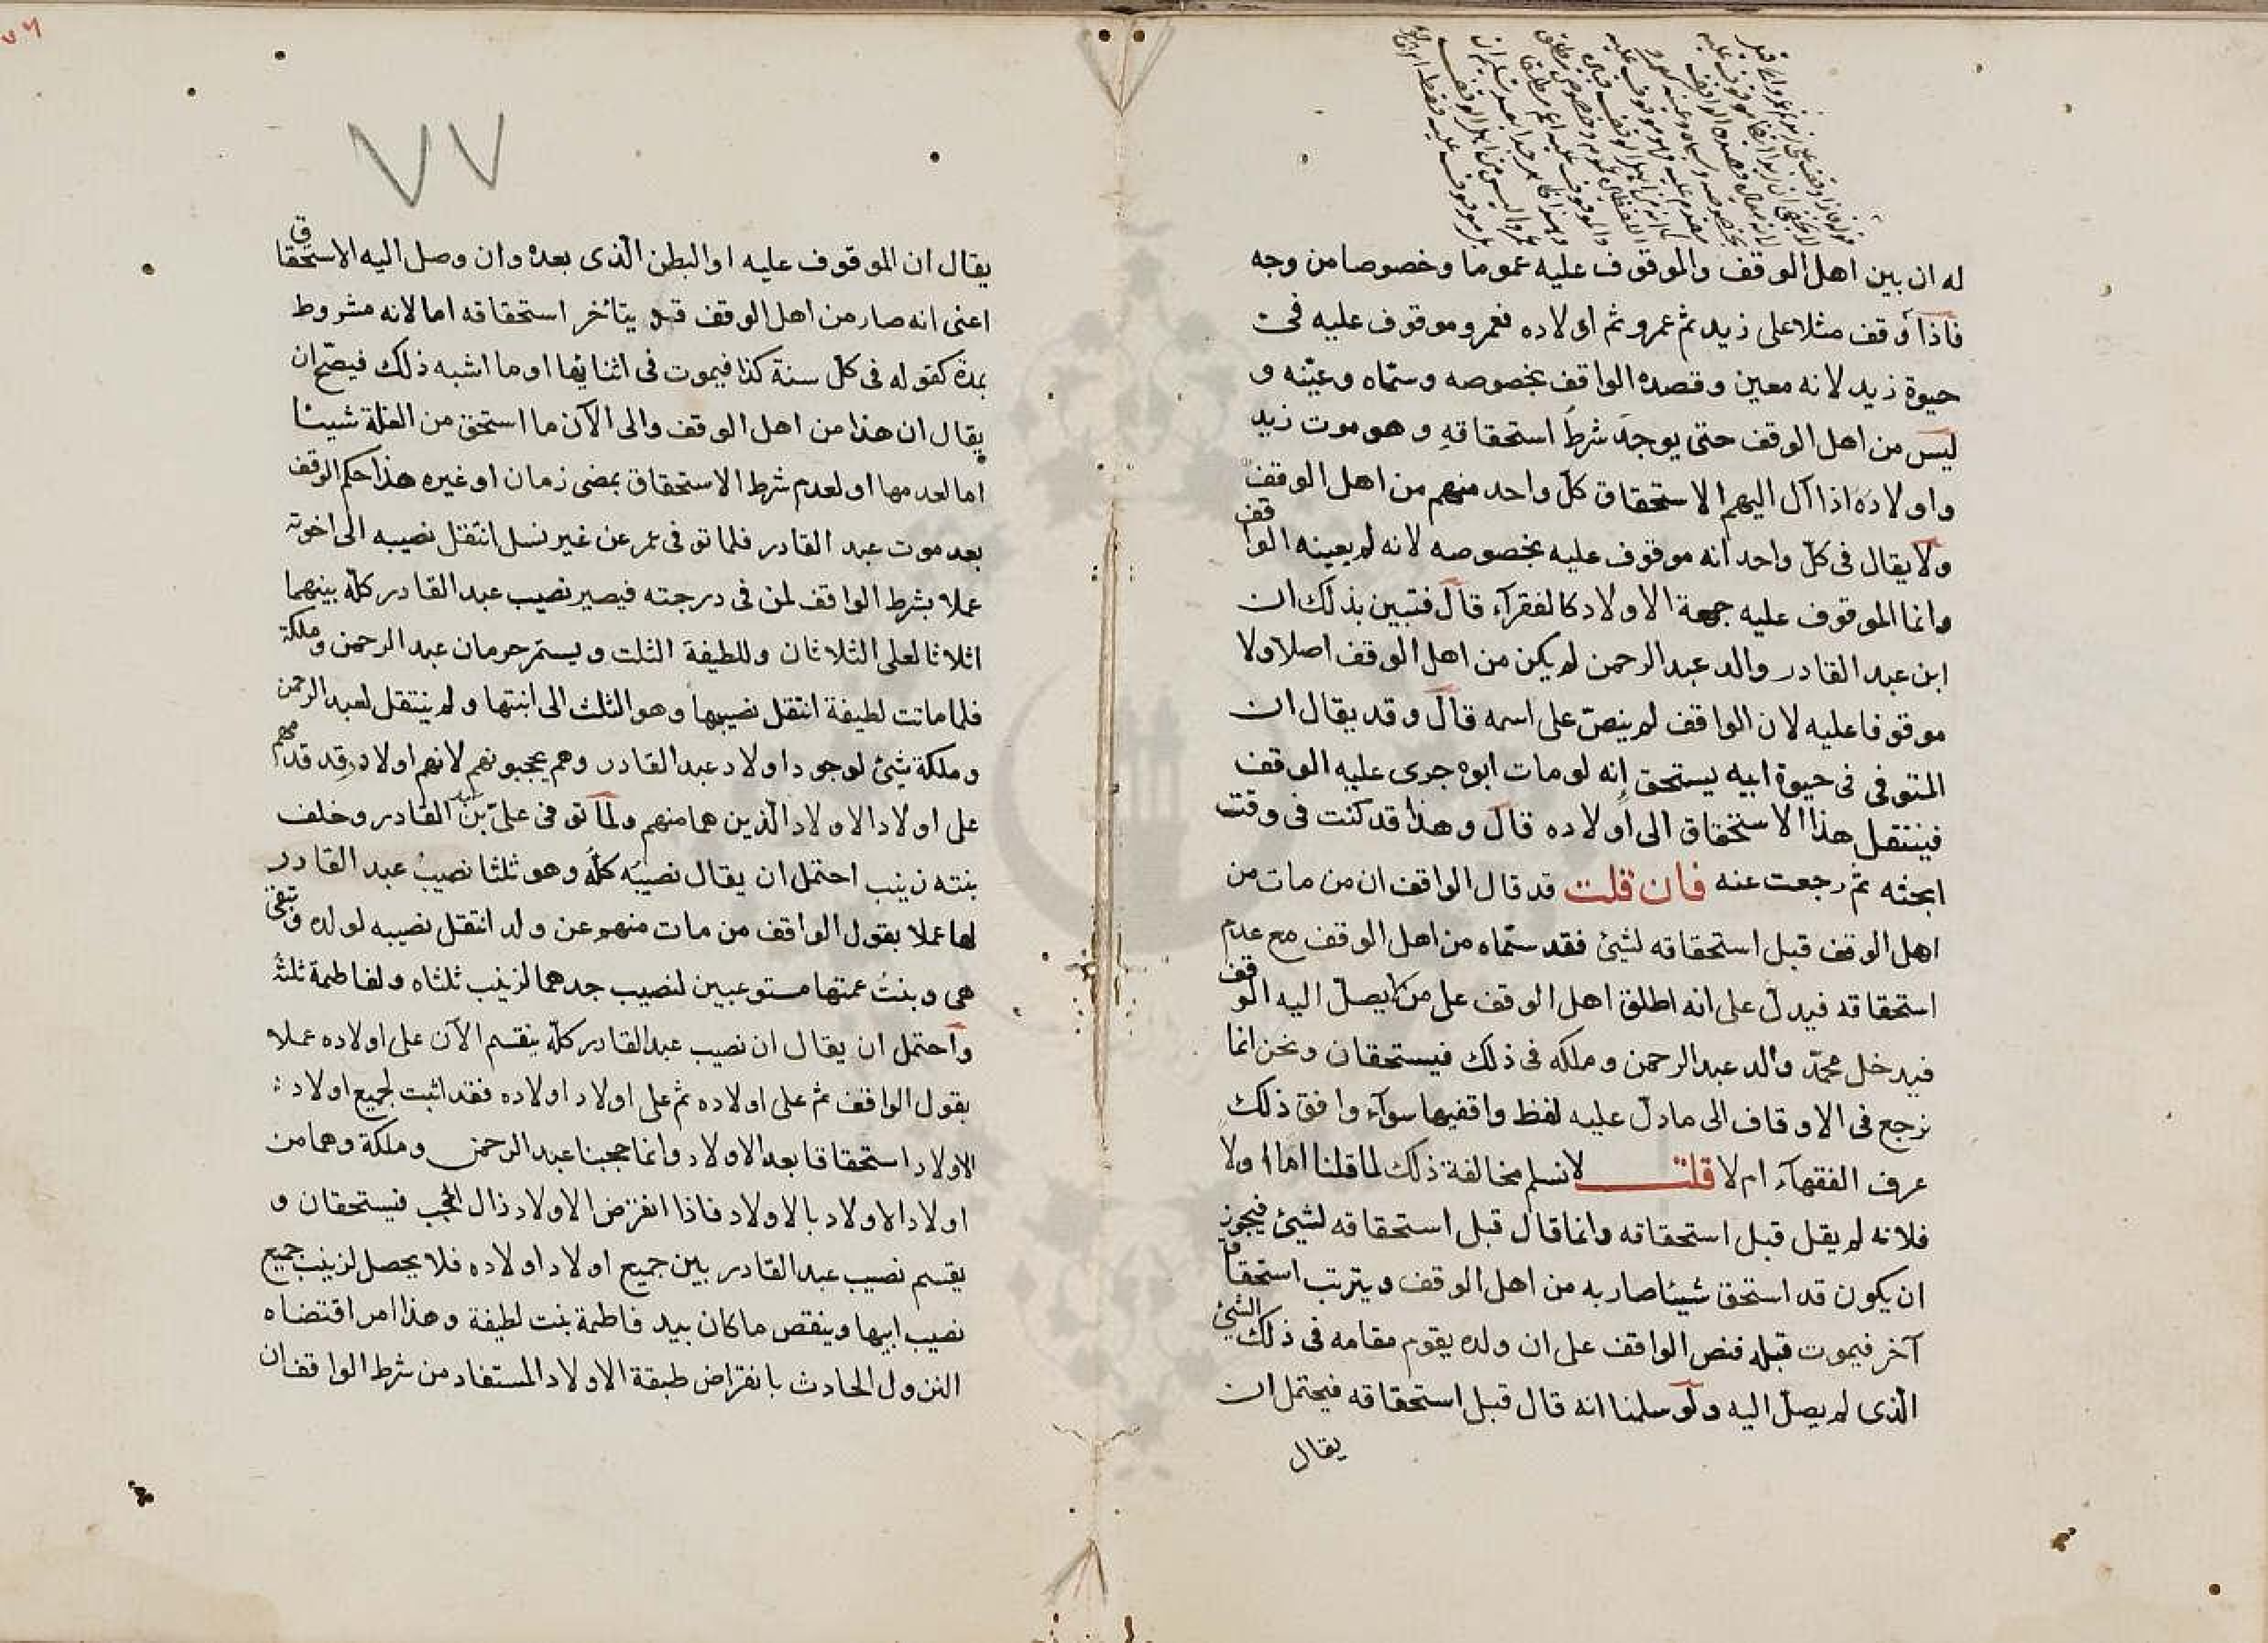 له ان بين اهل الوقف والموقوف عليه عموما وخصوصا من وجه
فاذا وقف مثلا على زيد ثم عمرو ثم اولاده فعمرو موقوف عليه فى
حيوة زيد لانه معين وقصده الواقف بخصوصه وسمّاه وعيّنه و
ليس من اهل الوقف حتى يوجد شرط استحقاقه وهو موت زيد
واولاده اذا آل اليهم الاستحقاق كلّ واحد منهم من اهل الوقف
ولا يقال فى كلّ واحد انه موقوف عليه بخصوصه لانه لم يعينه الواقف
وانما الموقوف عليه جهة الاولاد كالفقرآء قال فتبين بذلك ان
ابن عبد القادر والد عبد الرحمن لم يكن من اهل الوقف اصلا ولا
موقوفا عليه لان الواقف لم ينصّ على اسمه قال وقد يقال ان
المتوفى فى حيوة ابيه يستحق انه لو مات ابوه جرى عليه الوقف
فينتقل هذا الاستحقاق الى اولاده قال وهذا قد كنت فى وقت
ابحثه ثم رجعت عنه فان قلت قد قال الواقف ان من مات من
اهل الوقف قبل استحقاقه لشئ فقد سمّاه من اهل الوقف مع عدم
استحقاقه فيدل على انه اطلق اهل الوقف على من لا يصل اليه الوقف
فيدخل محمّد والد عبد الرحمن وملكه فى ذلك فيستحقان ونحن انما
نرجع فى الاوقاف الى ما دلّ عليه لفظ واقفيها سوآء وافق ذلك
عرف الفقهآء ام لا قلت لا نسلم مخالفة ذلك لما قلنا اما اولا
فلانه لم يقل قبل استحقاقه وانما قال قبل استحقاقه لشئ فيجوز
ان يكون قد استحق شيئا صار به من اهل الوقف ويترتب استحقاقا
آخر فيموت قبله فنص الواقف على ان ولده يقوم مقامه فى ذلك الشئ
الّذى لم يصل اليه ولو سلمنا انه قال قبل استحقاقه فيحتمل ان
يقال
٧٦
٧٧
يقال ان الموقوف عليه او البطن الّذى بعده وان وصل اليه الاستحقاق
اعنى انه صار من اهل الوقف قد يتأخر استحقاقه اما لانه مشروط
بمدة كقوله فى كلّ سنة كذا فيموت فى اثنائها او ما اشبه ذلك فيصحّ ان
يقال ان هذا من اهل الوقف والى الآن ما استحق من الغلة شيئا
اما لعدمها او لعدم شرط الاستحقاق بمضى زمان او غيره هذا حكم الوقف
بعد موت عبد القادر فلما توفى عمر عن غير نسل انتقل نصيبه الى اخوته
عملا بشرط الواقف لمن فى درجته فيصير نصيب عبد القادر كلّه بينهما
اثلاثا لعلى الثلاثان وللطيفة الثلث ويستمر حرمان عبد الرحمن وملكة
فلما ماتت لطيفة انتقل نصيبها وهو الثلث الى ابنتها ولم ينتقل لعبد الرحمن
وملكة شئ لوجود اولاد عبد القادر وهم يحجبونهم لانهم اولاد وقد قدمهم
على اولاد الاولاد الّذين هما منهم ولمّا توفى علىّ بن عبد القادر وخلف
بنته زينب احتمل ان يقال نصيبه كلّه وهو ثلثا نصيب عبد القادر
لها عملا بقول الواقف من مات منهم عن ولد انتقل نصيبه لولده وتبقى
هى وبنت عمتها مستوعبين لنصيب جدهما لزينب ثلثاه ولفاطمة ثلثه
واحتمل ان يقال ان نصيب عبد القادر كلّه ينقسم الآن على اولاده عملا
بقول الواقف ثم على اولاده ثم على اولاد اولاده فقد اثبت لجميع اولاد
الاولاد استحقاقا بعد الاولاد وانما حجبنا عبد الرحمن وملكة وهما من
اولاد الاولاد بالاولاد فاذا انقرض الاولاد زال الحجب فيستحقان و
يقسم نصيب عبد القادر بين جميع اولاد اولاده فلا يحصل لزينب جميع
نصيب ابيها وينقص ما كان بيد فاطمة بنت لطيفة وهذا امر اقتضاه
النزول الحادث بانقراض طبقة الاولاد المستفاد من شرط الواقف ان